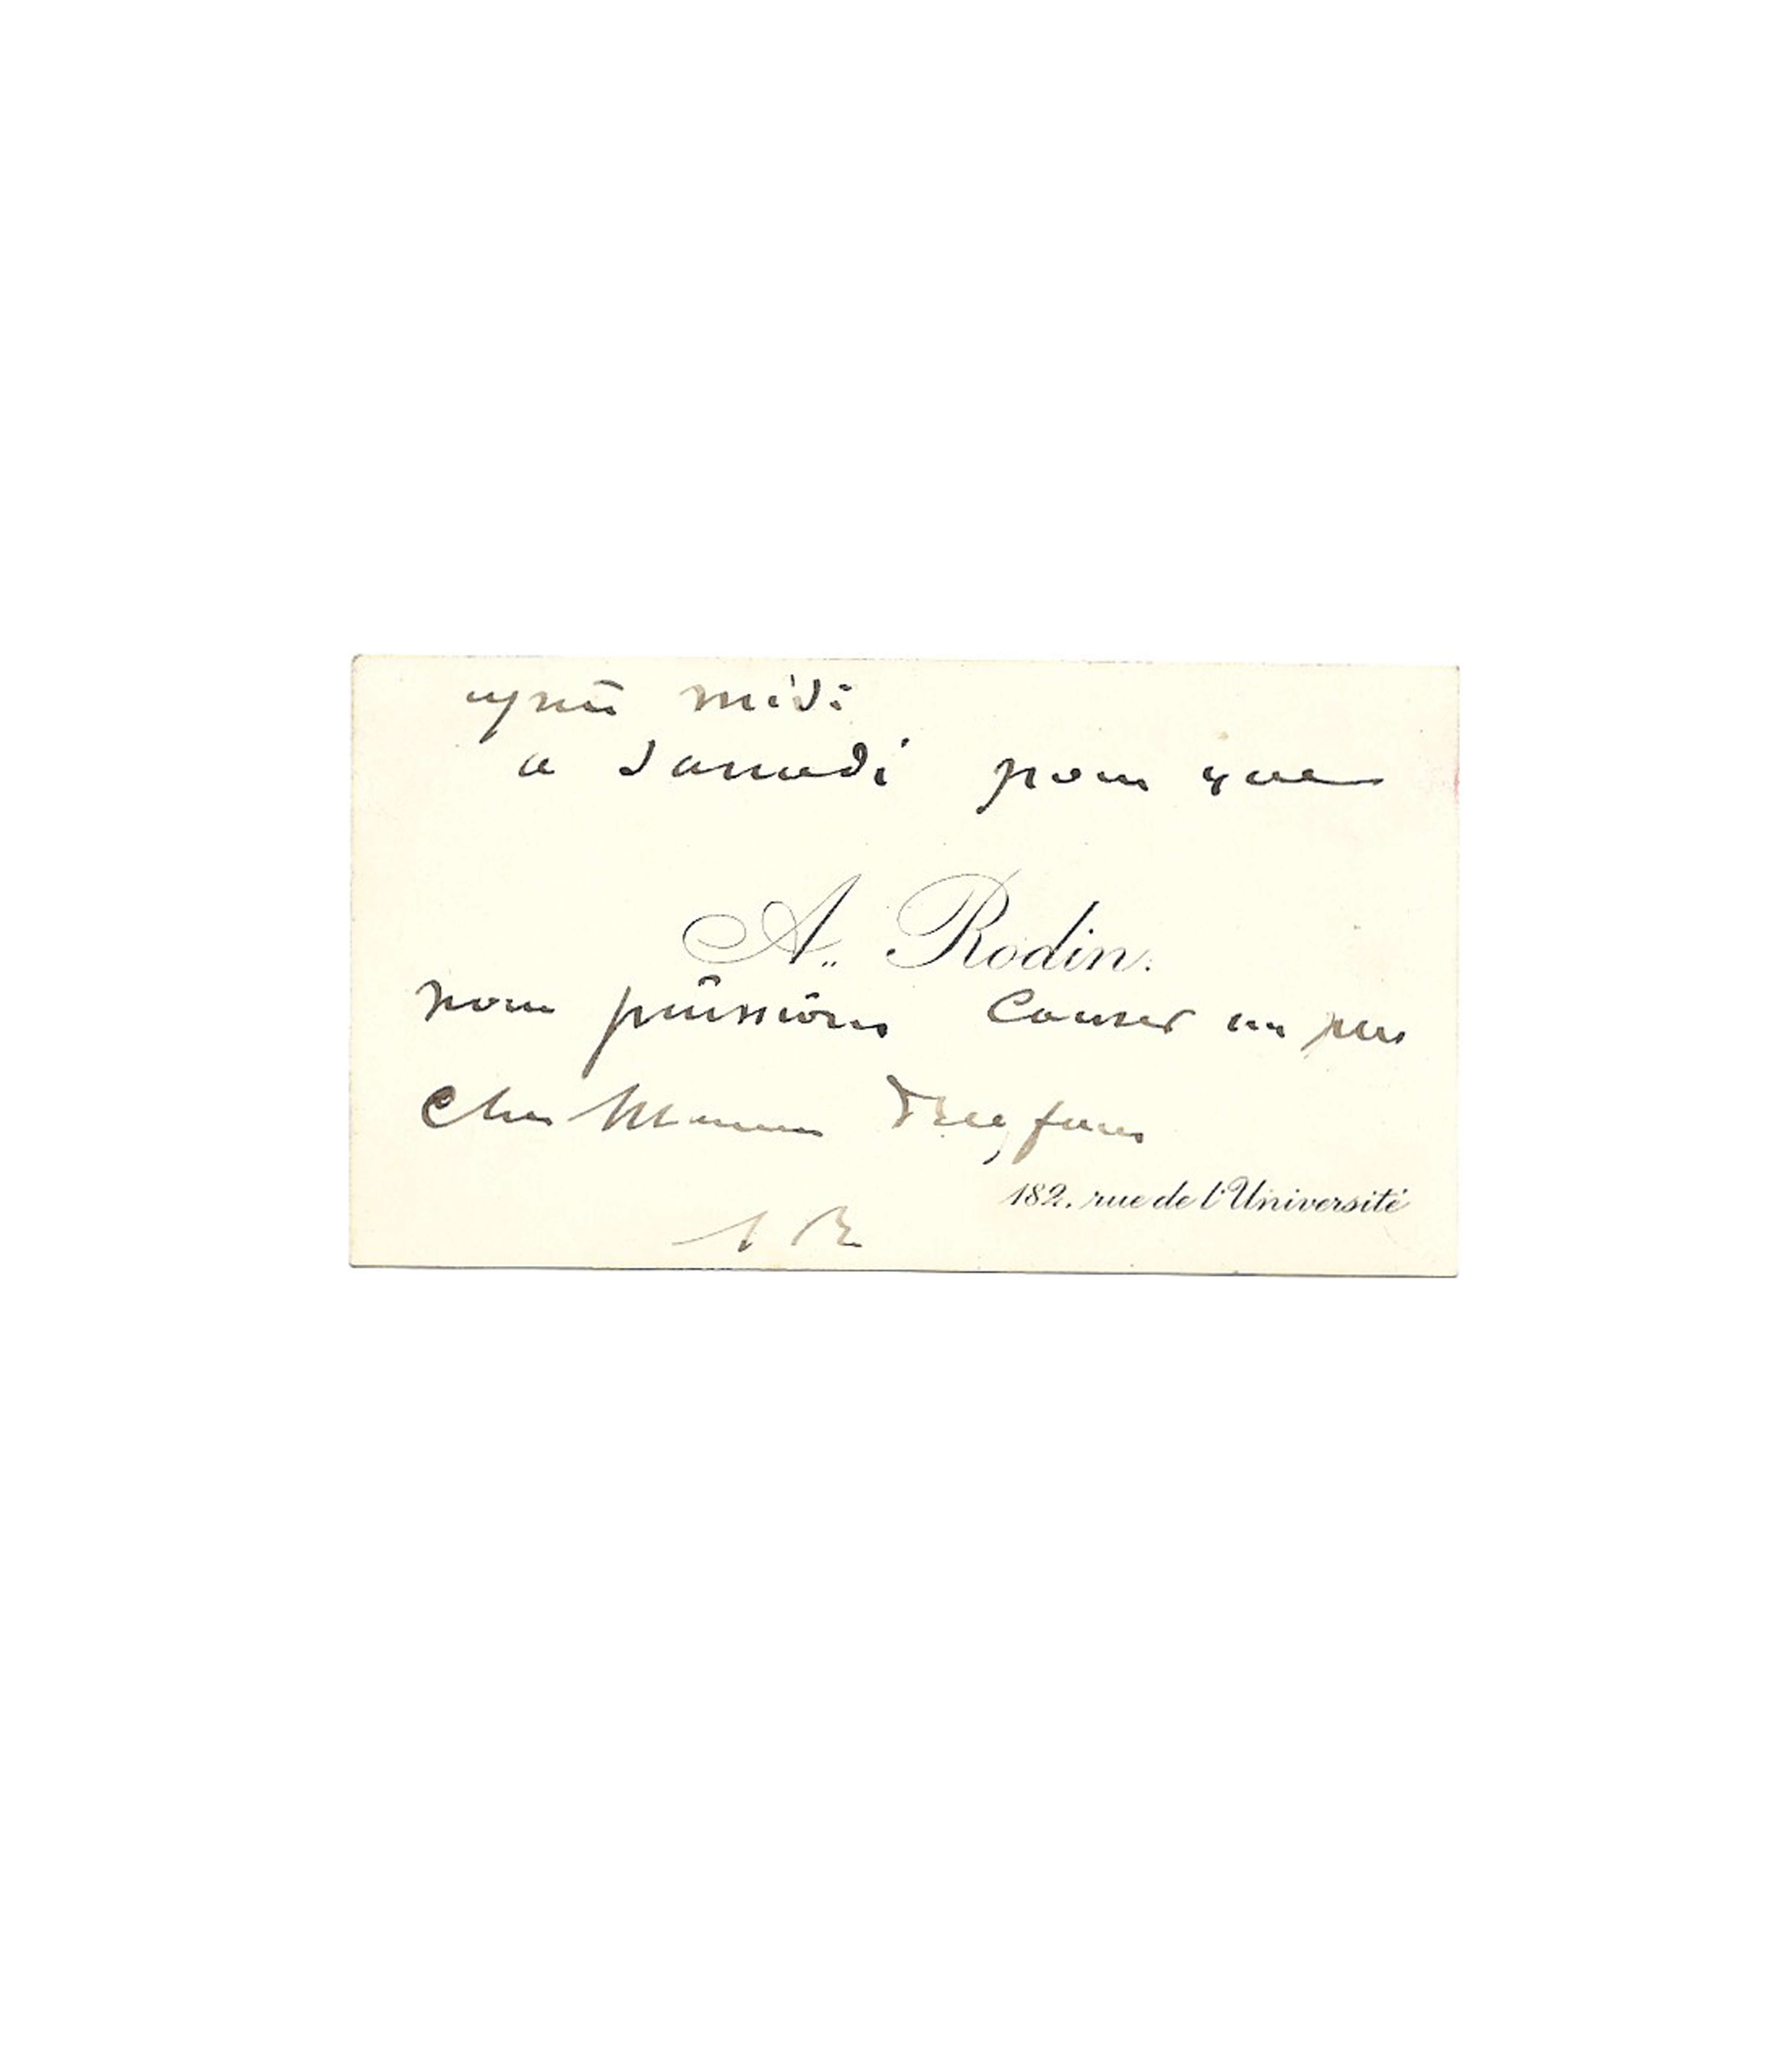 après midi
a samedi pour que
A. Rodin.
nous puissions Causer un peu
Cher Monsieur Dreyfus
182. rue de l'Université
A R